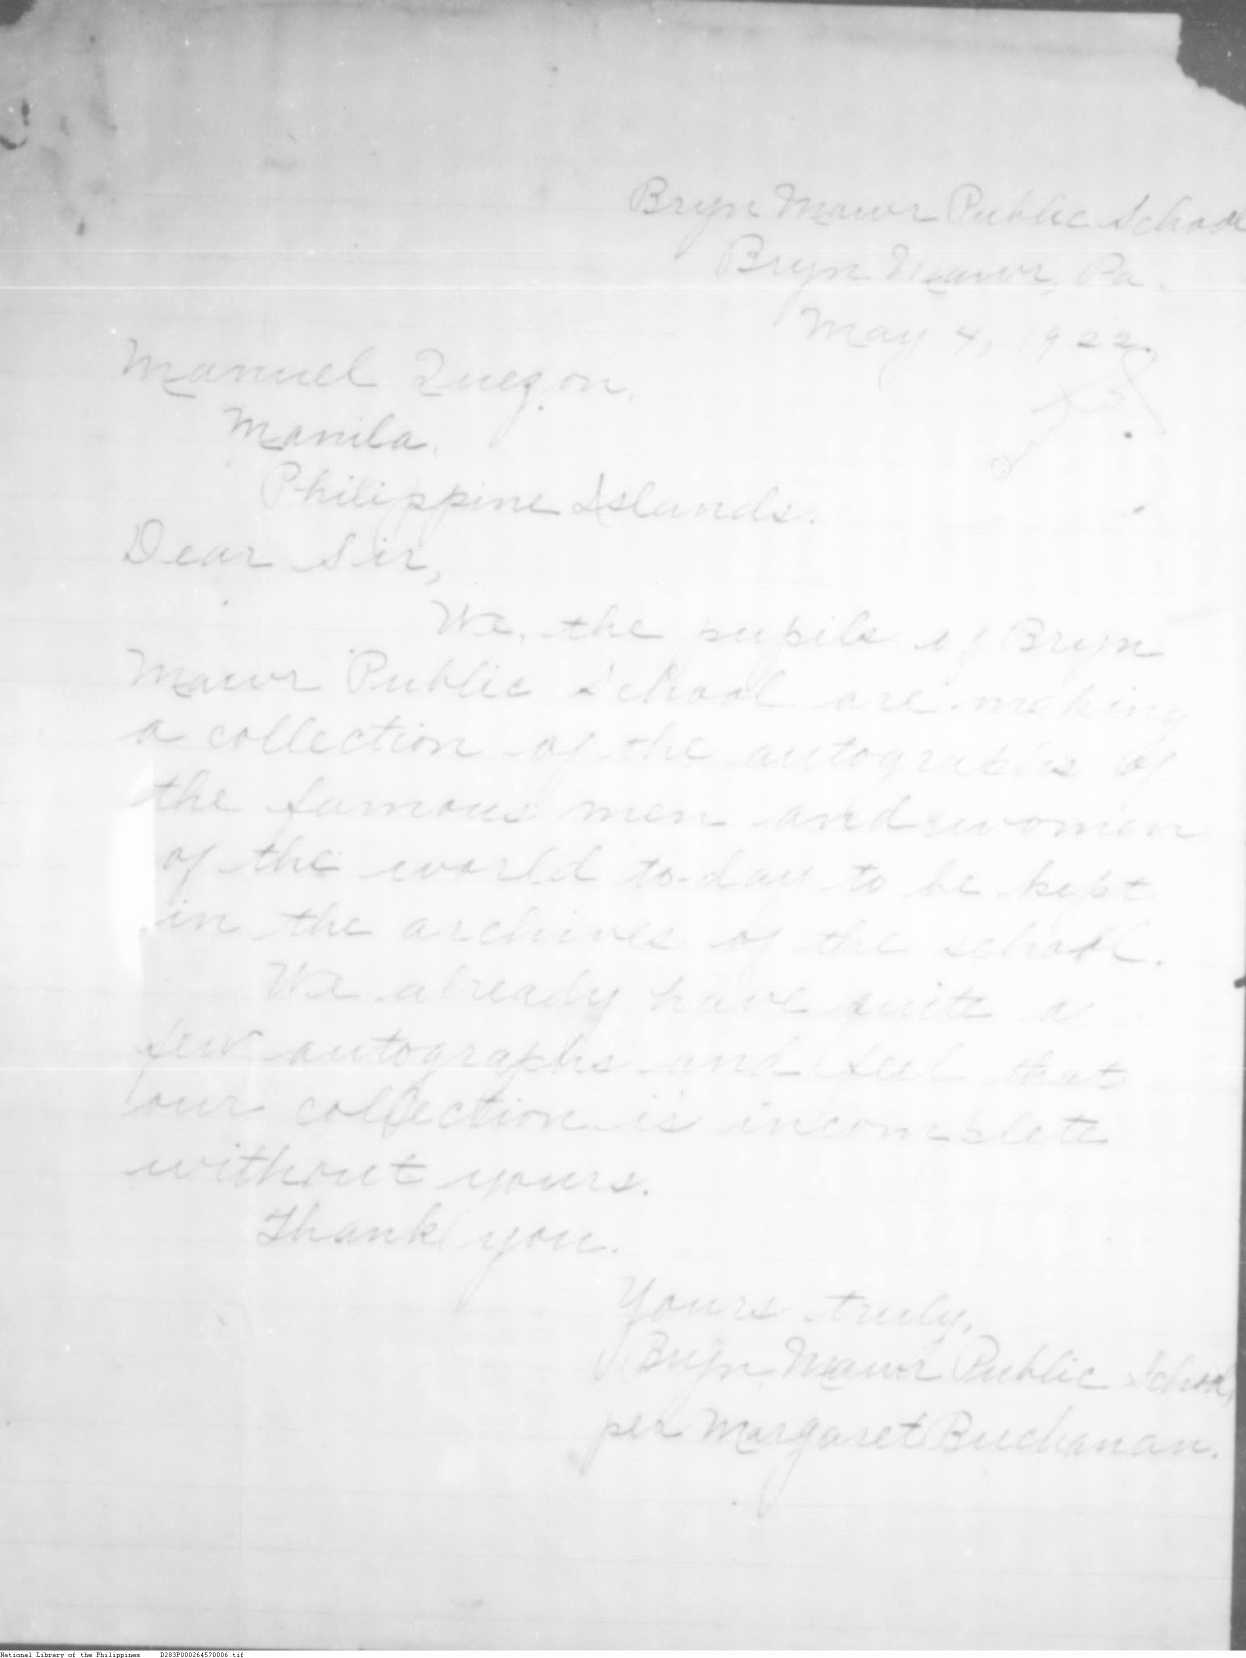 Bryn Mawr Public School
Bryn Mawr, Pa.
May 4, 1922.
Manuel Quezon,
Manila,
Philippine Islands.
Dear Sir,
We, the pupils of Bryn
Mawr Public School are making
a collection of the autographs of
the famous men and women
of the world to-day to be kept
in the archives of the school.
We already have quite a
few autographs and feel that
our collection is incomplete
without yours.
Thank you.
Yours truly,
Bryn Mawr Public School,
per Margaret Buchanan.
National Library of the Philippines D283P000264570006.tif